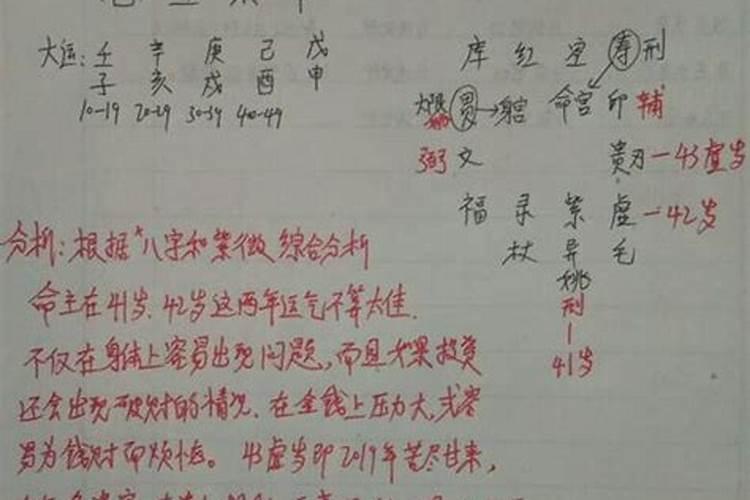 大运: 壬 辛 庚 己 戊
子 亥 戌 酉 申
10-19 20-29 30-39 40-49
库 红 空 寿 刑
大限 贯→ 命宫 印 辅
弼 文 贵刃-43虚岁
福 录 紫 虚-42岁
杖 异 毛
姚
刑
41岁
分析: 根据"八字和紫微 综合分析
命主在41岁、42岁这两年运气不算太佳.
不仅在身体上容易出现问题, 而且如果投资
还会出现破财的情况. 在金钱上压力大, 或容
易为钱财而烦恼。 43虚岁即2019年苦尽甘来,